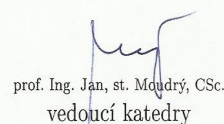 prof. Ing. Jan, st. Moudrý, CSc.
vedoucí katedry